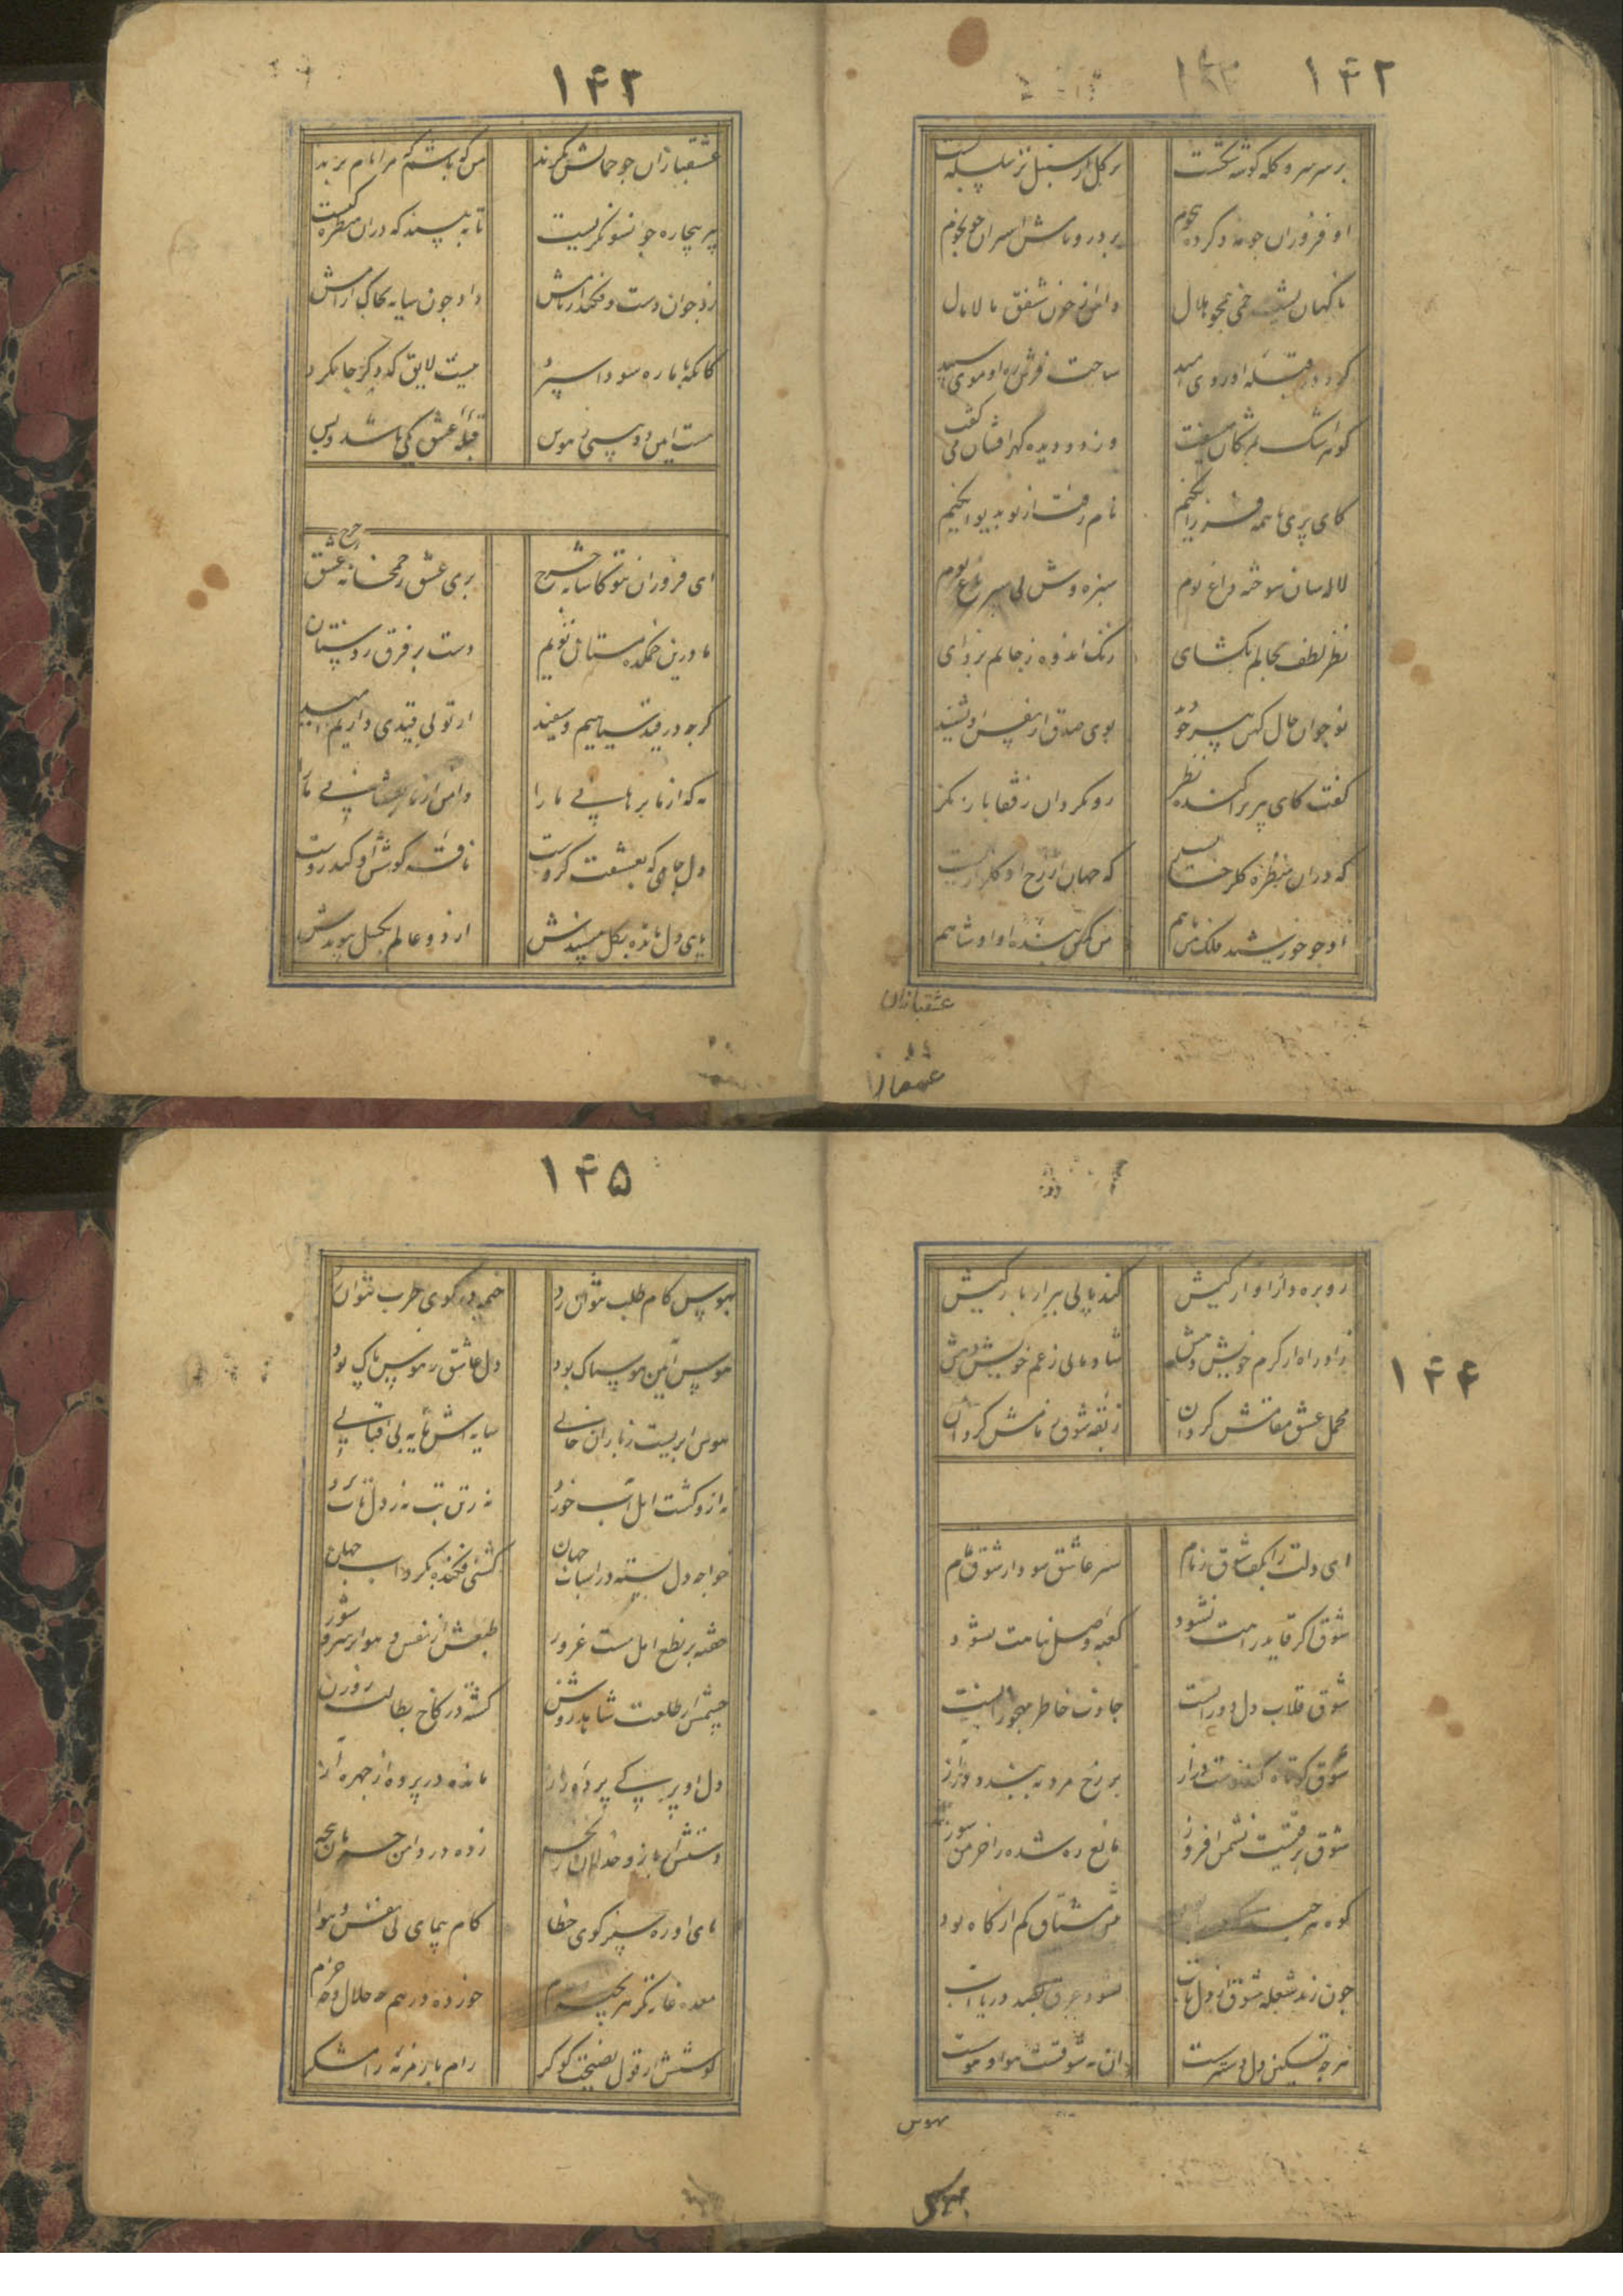 ۱۴۲
بر سر سرو کله گوشه شکست بر گل از سنبل تر سلسله بست
او فروزان چو مه و کرده هجوم بر در و بامش اسیران چو نجوم
ناگهان پشت خمی همچو هلال دامن از خون شفق مالامال
کرد در قبله او روی امید ساخت فرش ره او موی سپید
گوهر اشک بمژگان میسفت وز دو دیده گهر افشان می گفت
کای پری با همه فرزانگیم نام رفت از تو بدیوانگیم
لاله سان سوخته داغ توم سبزه وش پی سپر باغ توم
نظر لطف بحالم بگشای زنگ اندوه ز جانم بزدای
نوجوان حال کهن پیر چو بوی صدق از نفس او نشنید
گفت کای پیر پراکنده نظر رو بگردان بقفا باز نگر
که در آن منظره گلرخساریست که جهان از رخ او گلزاریست
او چو خورشید فلک من ماهم من کمین بنده او او شاهم
عشقبازان
۱۴۳
عشقبازان چو جمالش نگرند من که باشم که مرا نام برند
پیر بیچاره چو آنسو نگریست تا ببیند که در آن منظره کیست
زد جوان دست و فکند از بامش داد چون سایه بخاک آرامش
کانکه با ما ره سودا سپرد نیست لایق که دگر جا نگرد
هست آیین دو بینی ز هوس قبله عشق یکی باشد و بس
ای فروزان بتو کاشانه چرخ پری عشق ز خمخانه عشق چرخ
ما درین خمکده مستان توییم دست بر فرق ز دستان
گرچه در قید سیاهیم و سفید از تو بی قیدی داریم امید
که از ما برهانی ما را دامن از ما بفشانی ما را
دل جامی که بعشقت گروست تافته گوش او کند روست
پای دل مانده بگل مپسندش از دو عالم بگسل پیوندش
۱۴۴
رو بره دار از آوارگیش کند پایی ببر از بارگیش
زاد راه از کرم خویش دهش شادمانی ز غم خویش دهش
محمل عشق مقامش گردان ربقه شوق زمامش گردان
ای دلت را بکف شوق زمام سر عاشق سود از شوق
شوق اگر قاید راهت نشود کعبه وصل پناهت نشود
شوق قلاب دل دورانست جاذب خاطر مهجورانست
شوق کوتاه کند دست دراز بر رخ مرد ببندد در آز
شوق برقیست نشیمن افروز مانع ره شده را خرمن سوز
کوه هر چند مشتاق کم از کاه بود
چون زند شعله شوق از دل تاب نشود غرق بصد دریا آب
هر چه تسکین ده دل دسترست آن نه شوقست هوا و هوسست
بهوس
۱۴۵
بهوس کام طلب نتوان زد خیمه در کوی طرب نتوان زد
هوس آیین هوسناک بود دل عاشق ز هوس پاک بود
هوس ابریست ز باران خالی سایه اش مایه بی اقبالی
نه ازو کشت امل آب خورد نه ز تن تب نه ز دل تاب برد
خواجه دل بسته در اسباب جهان کشتی افکنده بگرداب جهان
خفته بر نطع امل مست غرور طبعش از نفس و هوا بر سر شور
چشمش از طلعت شاهد روشن گشته در کاخ بطالت روزن
دل او پی پرده مانده در پرده از چهره
دستش زده در دامن
پای او ره سپر کوی خطا گام پیمای پی نفس و هوا
معده خورده در هم چه حلال و چه حرام
گوشش از قول نصیحت گو کر رام با زمزمه رامشگر